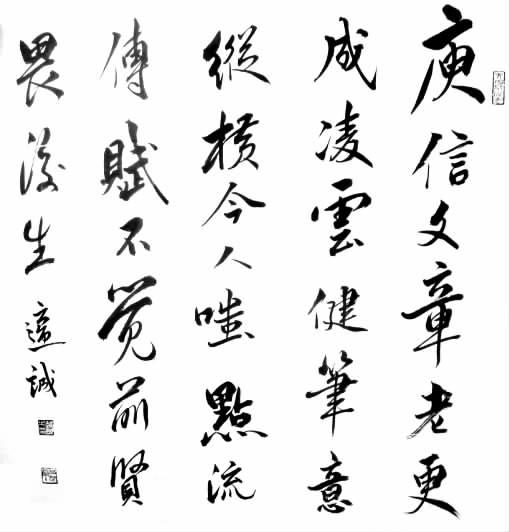 庾信文章老更
成凌雲健筆意
縱橫今人嗤點流
傳賦不觉前賢
畏後生
誠